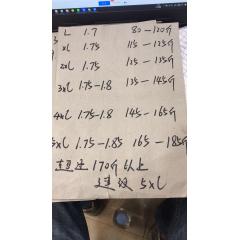 L 1.7 80-120斤
XL 1.75 115-125斤
2XL 1.75 125-135斤
3XL 1.75-1.8 135-145斤
4XL 1.75-1.8 145-165斤
5XL 1.75-1.85 165-185斤
超过170斤以上
建议5XL